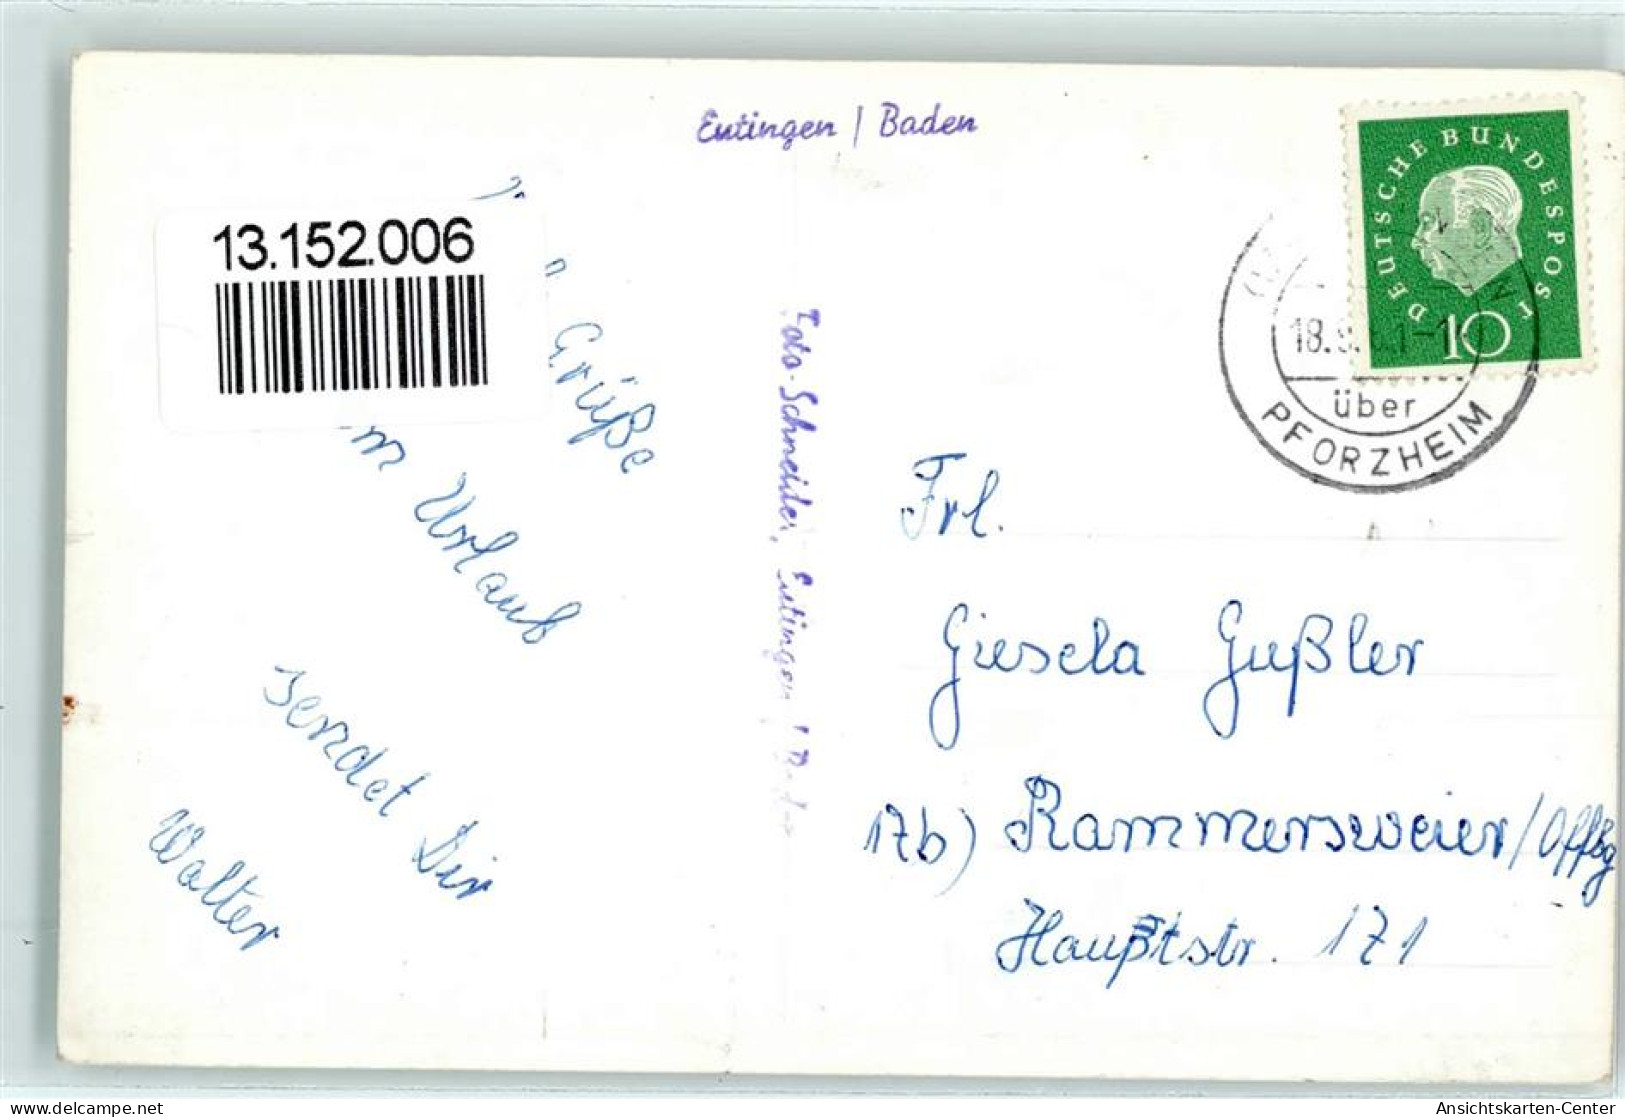 Eutingen / Baden
13.152.006
Grüße
Urlaub
sendet Dir
Walter
Foto-Schneider, Eutingen /
DEUTSCHE BUNDESPOST
10
18.
über
PFORZHEIM
Frl.
Giesela Gußler
17b) Rammersweier / Offbg
Hauptstr. 171
Ansichtskarten-Center
www.delcampe.net